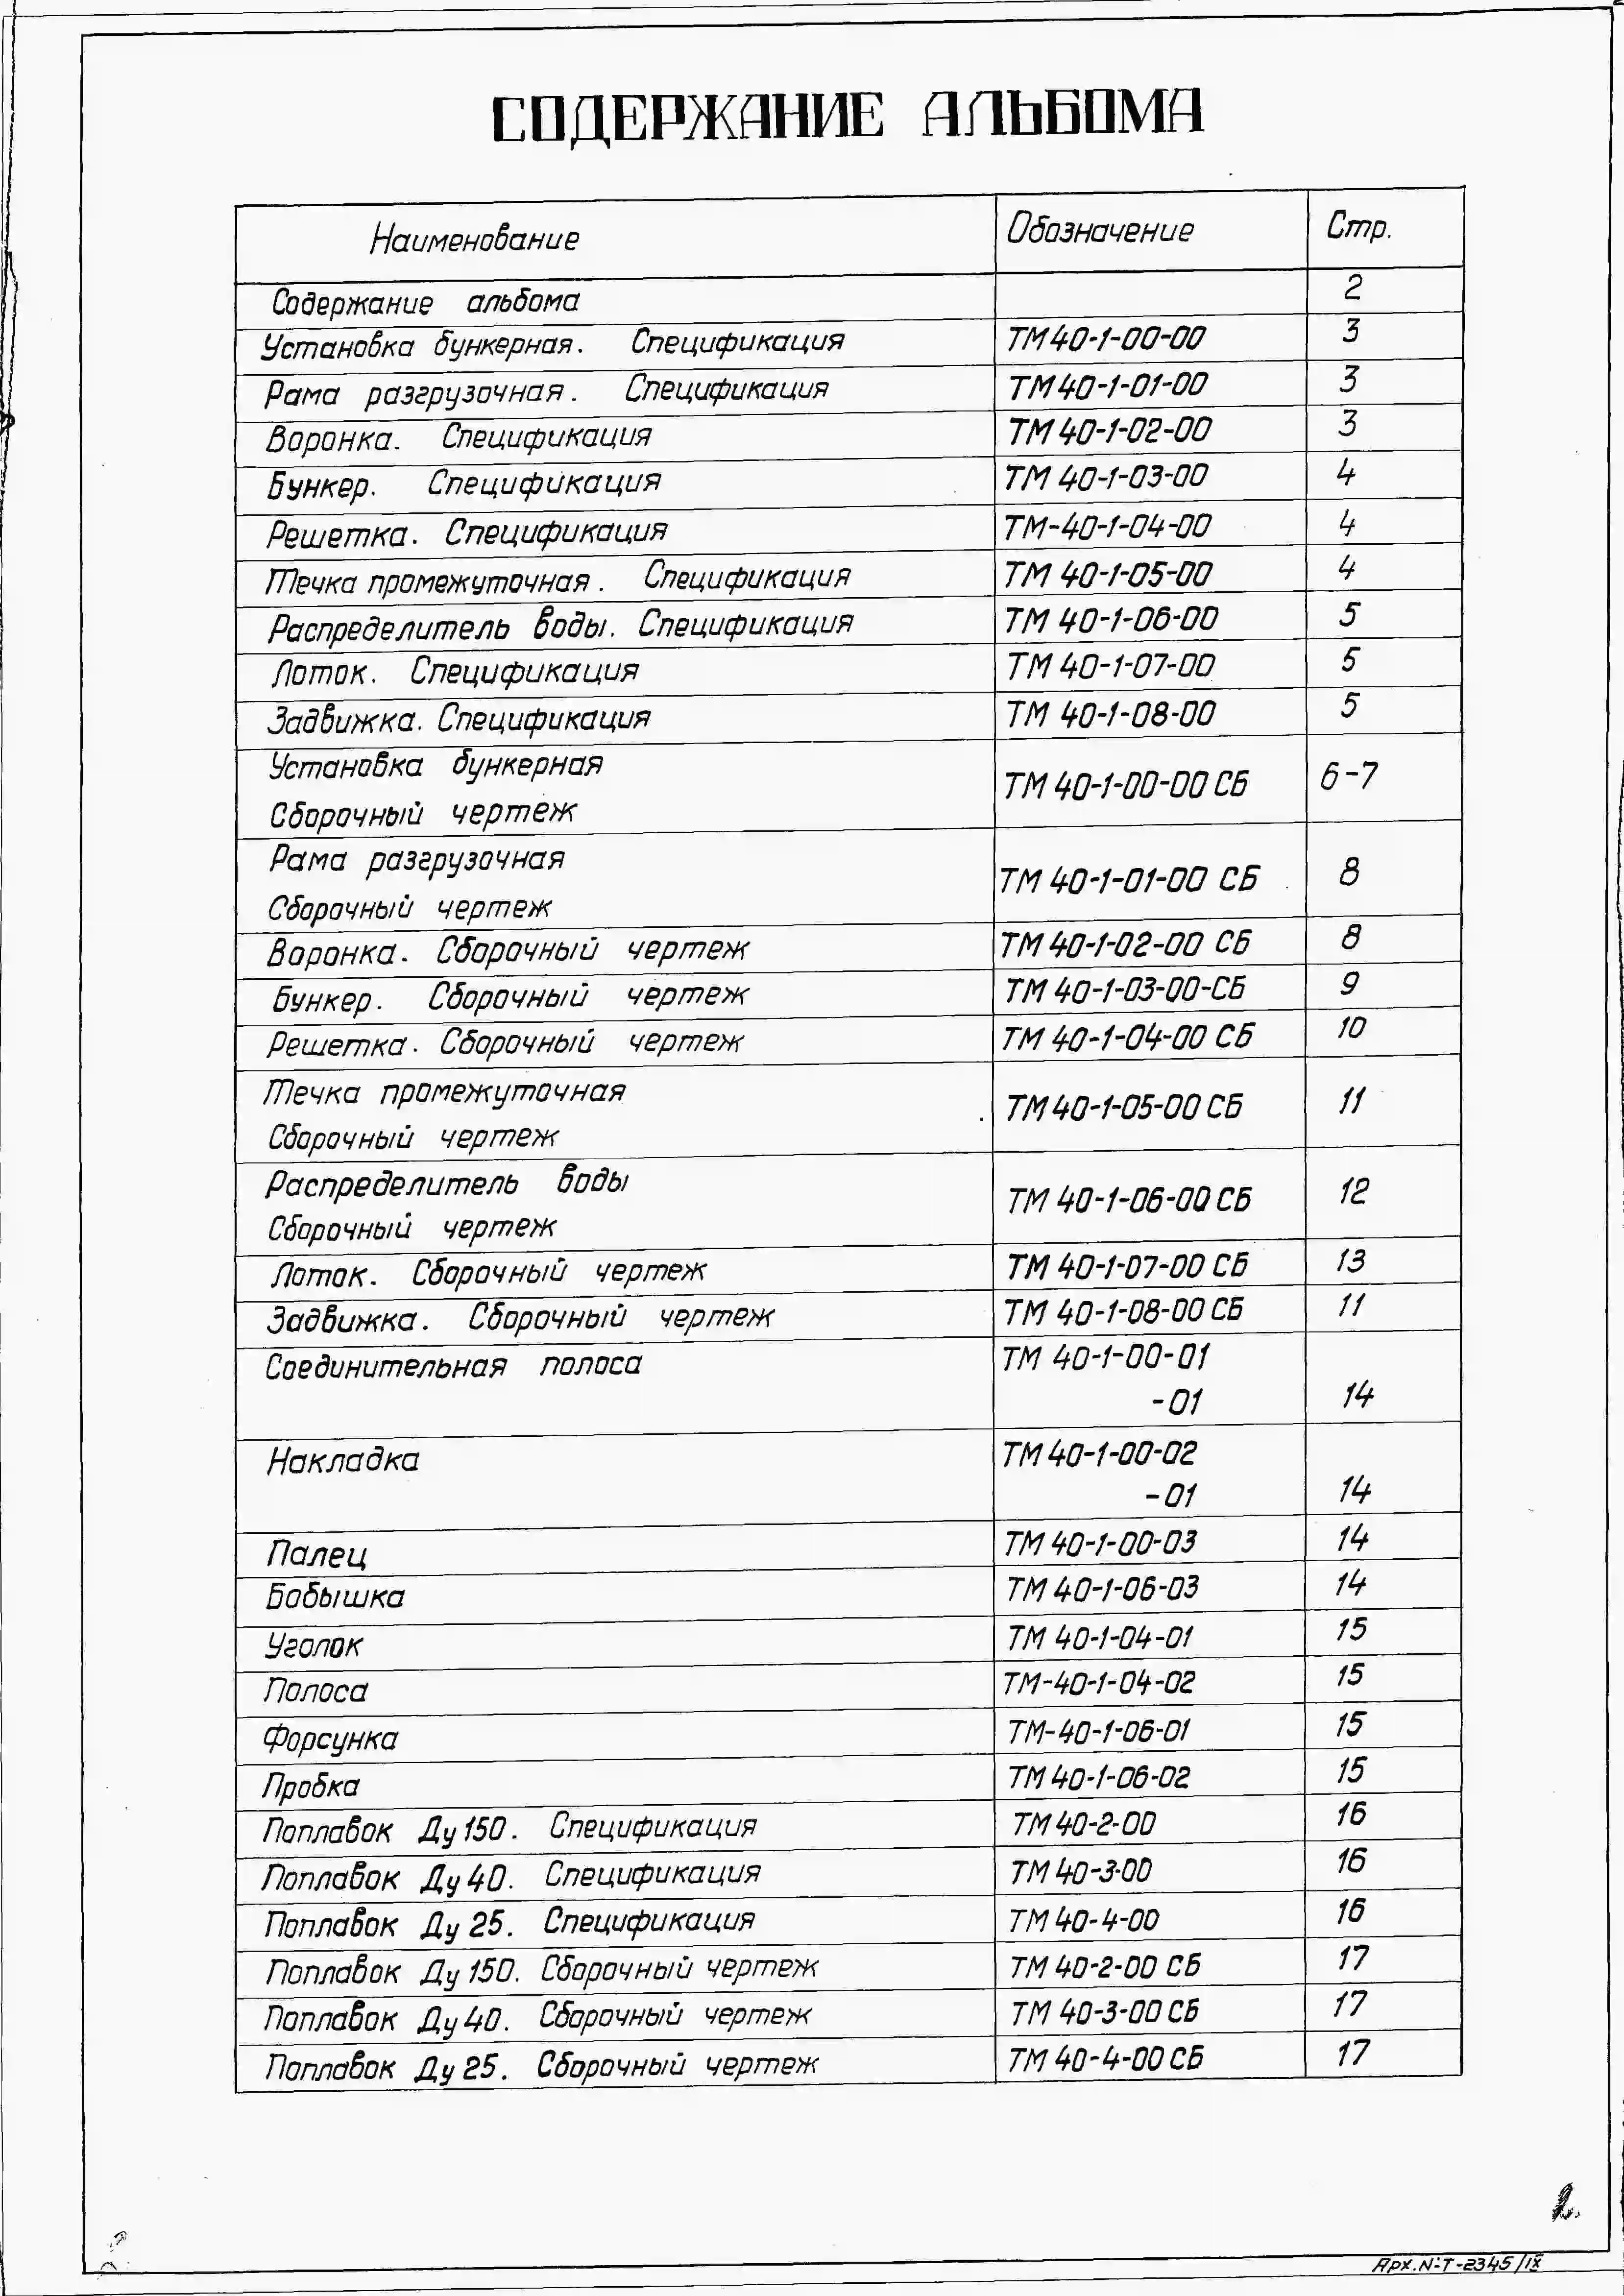 СОДЕРЖАНИЕ АЛЬБОМА
Наименование Обозначение Стр.
Содержание альбома 2
Установка бункерная. Спецификация ТМ 40-1-00-00 3
Рама разгрузочная. Спецификация ТМ 40-1-01-00 3
Воронка. Спецификация ТМ 40-1-02-00 3
Бункер. Спецификация ТМ 40-1-03-00 4
Решетка. Спецификация ТМ-40-1-04-00 4
Течка промежуточная. Спецификация ТМ 40-1-05-00 4
Распределитель воды. Спецификация ТМ 40-1-06-00 5
Лоток. Спецификация ТМ 40-1-07-00 5
Задвижка. Спецификация ТМ 40-1-08-00 5
Установка бункерная
Сборочный чертеж ТМ 40-1-00-00 СБ 6-7
Рама разгрузочная
Сборочный чертеж ТМ 40-1-01-00 СБ 8
Воронка. Сборочный чертеж ТМ 40-1-02-00 СБ 8
Бункер. Сборочный чертеж ТМ 40-1-03-00-СБ 9
Решетка. Сборочный чертеж ТМ 40-1-04-00 СБ 10
Течка промежуточная
Сборочный чертеж ТМ 40-1-05-00 СБ 11
Распределитель воды
Сборочный чертеж ТМ 40-1-06-00 СБ 12
Лоток. Сборочный чертеж ТМ 40-1-07-00 СБ 13
Задвижка. Сборочный чертеж ТМ 40-1-08-00 СБ 11
Соединительная полоса ТМ 40-1-00-01
-01 14
Накладка ТМ 40-1-00-02
-01 14
Палец ТМ 40-1-00-03 14
Бобышка ТМ 40-1-06-03 14
Уголок ТМ 40-1-04-01 15
Полоса ТМ-40-1-04-02 15
Форсунка ТМ-40-1-06-01 15
Пробка ТМ 40-1-06-02 15
Поплавок Ду 150. Спецификация ТМ 40-2-00 16
Поплавок Ду 40. Спецификация ТМ 40-3-00 16
Поплавок Ду 25. Спецификация ТМ 40-4-00 16
Поплавок Ду 150. Сборочный чертеж ТМ 40-2-00 СБ 17
Поплавок Ду 40. Сборочный чертеж ТМ 40-3-00 СБ 17
Поплавок Ду 25. Сборочный чертеж ТМ 40-4-00 СБ 17
2.
Арх.№Т-2345/IX